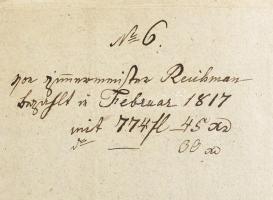 No 6.
vor Zimmermeister Reichman
bezahlt in Februar 1817
mit 774 fl 45 xr